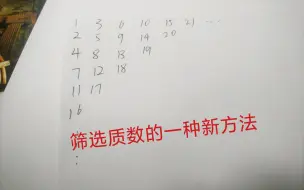 1 3 6 10 15 21 ...
2 5 9 14 20
4 8 13 19
7 12 18
11 17
16
筛选质数的一种新方法
: